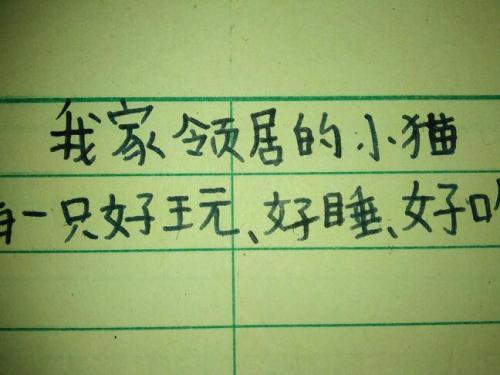 我家领居的小猫
一只好玩、好睡、好